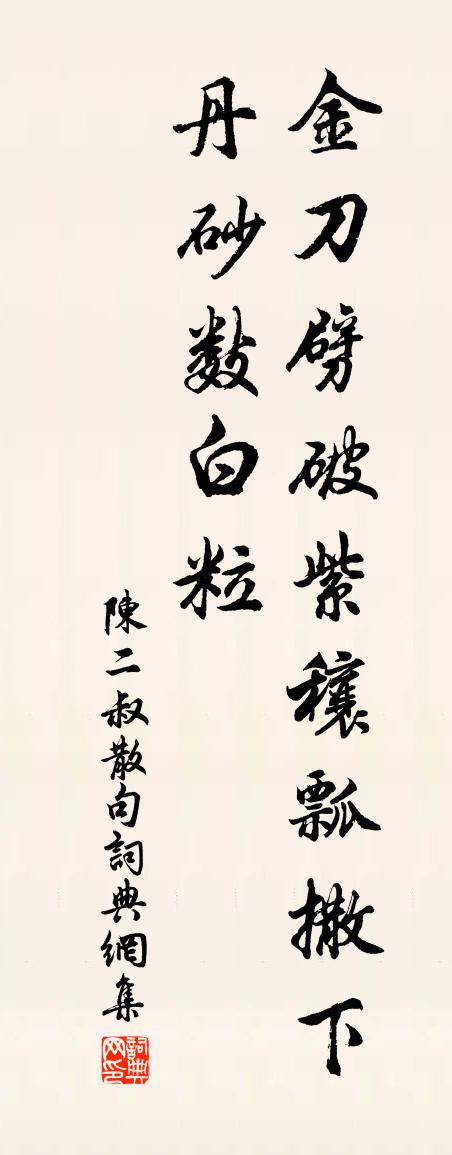 金刀劈破紫穰瓢撒下
丹砂数白粒
陳二叔散句詞典網集
詞典网印